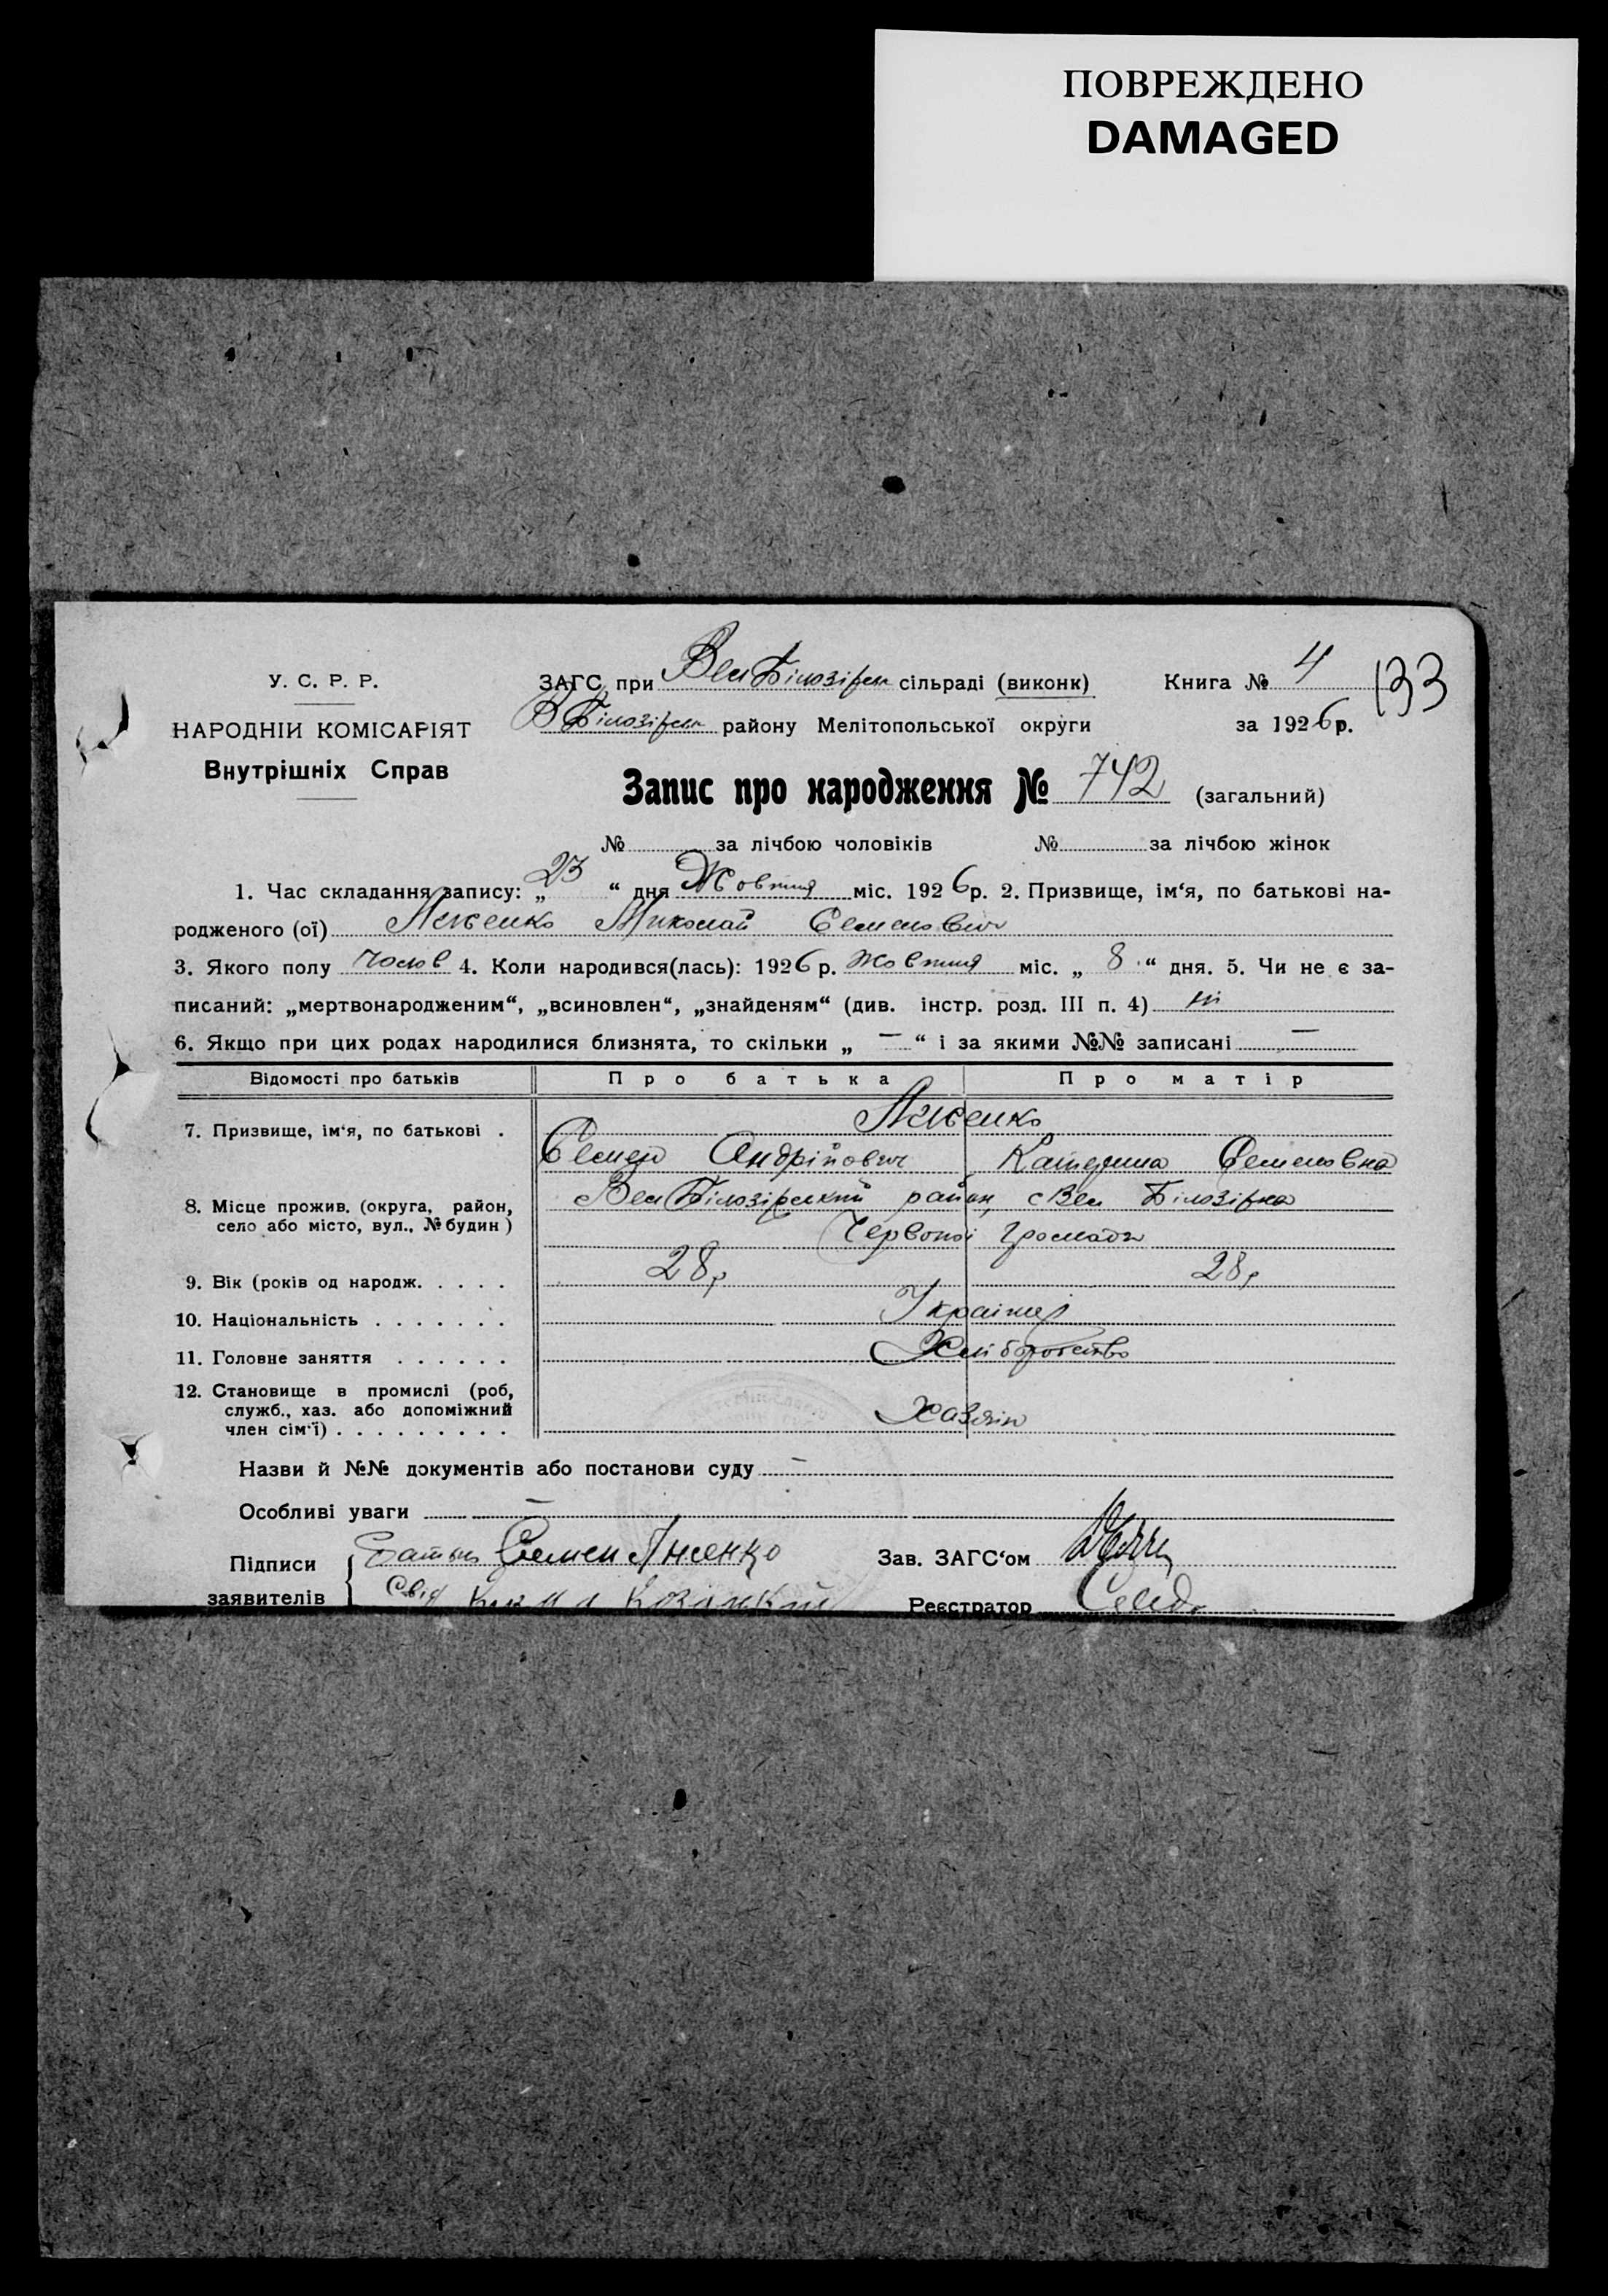 ПОВРЕЖДЕНО
DAMAGED
У. С. Р. Р.
НАРОДНІЙ КОМІСАРІЯТ
Внутрішніх Справ
ЗАГС при Вел Білозірськ сільраді (виконк)
В Білозірськ району Мелітопольської округи
Книга № 4
133
за 1926 р.
Запис про народження № 742 (загальний)
№ за лічбою чоловіків № за лічбою жінок
1. Час складання запису: „ 23 “ дня Жовтня міс. 1926 р. 2. Призвище, ім‘я, по батькові на-
родженого (ої) Миколай Семенович
3. Якого полу Чолов 4. Коли народився(лась): 1926 р. Жовтня міс. „ 8 “ дня. 5. Чи не є за-
писаний: „мертвонародженим“, „всиновлен“, „знайденям“ (див. інстр. розд. III п. 4) ні
6. Якщо при цих родах народилися близнята, то скільки „ — “ і за якими №№ записані —
Відомості про батьків Про батька Про матір
7. Призвище, ім‘я, по батькові .
Семен Андрійович Катерина Семеновна
8. Місце прожив. (округа, район,
село або місто, вул., № будин )
Вел Білозірський район, с Вел Білозірка
Червоної Громади
9. Вік (років од народж. . . . . 28 р 28 р
10. Національність . . . . . . . Українці
11. Головне заняття . . . . . . Хліборобство
12. Становище в промислі (роб,
служб., хаз. або допоміжний
член сім‘ї) . . . . . . . . . Хазяїн
Назви й №№ документів або постанови суду —
Особливі уваги —
Підписи
заявителів
Батько Семен
Свід
Зав. ЗАГС‘ом
Реєстратор